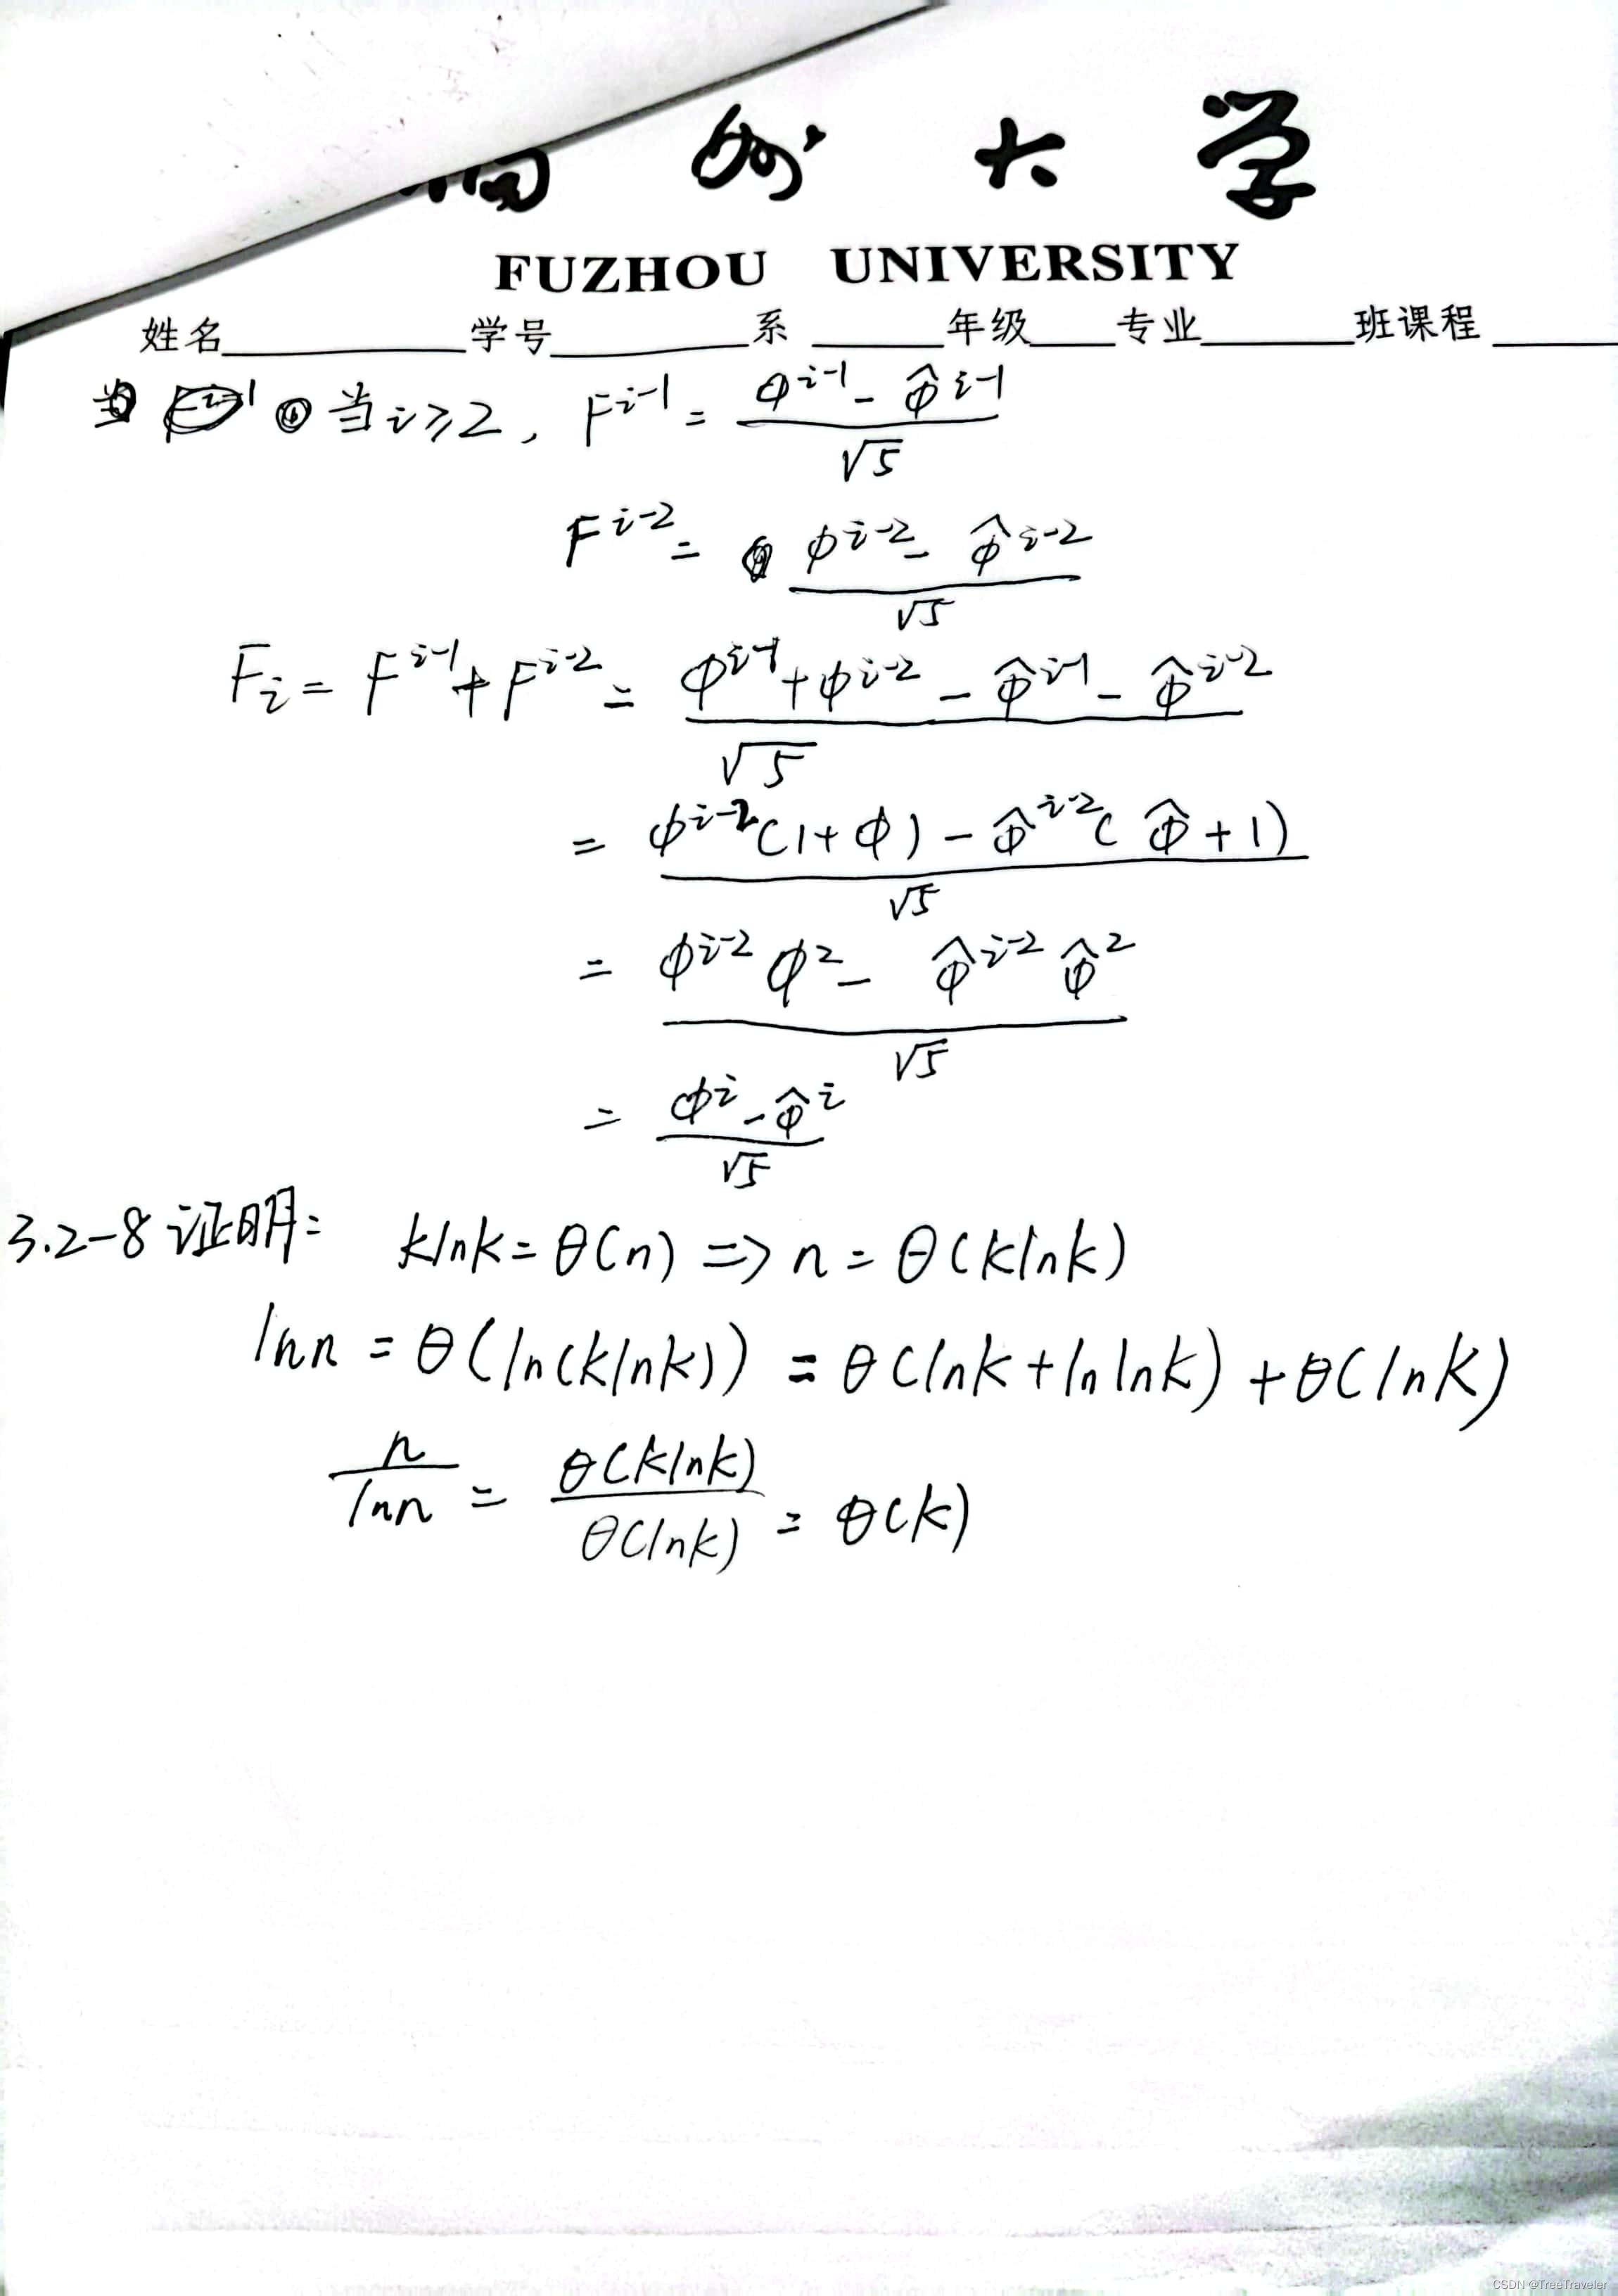 州大学
FUZHOU UNIVERSITY
姓名 学号 系 年级 专业 班课程
当 i ≥ 2, F^{i-1} = \frac{φ^{i-1} - \hat{φ}^{i-1}}{√5}
F^{i-2} = \frac{φ^{i-2} - \hat{φ}^{i-2}}{√5}
F_i = F^{i-1} + F^{i-2} = \frac{φ^{i-1} + φ^{i-2} - \hat{φ}^{i-1} - \hat{φ}^{i-2}}{√5}
= \frac{φ^{i-2}(1+φ) - \hat{φ}^{i-2}(\hat{φ}+1)}{√5}
= \frac{φ^{i-2} φ^2 - \hat{φ}^{i-2} \hat{φ}^2}{√5}
= \frac{φ^i - \hat{φ}^i}{√5}
3.2-8 证明: klnk = θ(n) => n = θ(klnk)
lnn = θ(ln(klnk)) = θ(lnk + lnlnk) + θ(lnk)
\frac{n}{lnn} = \frac{θ(klnk)}{θ(lnk)} = θ(k)
CSDN @TreeTraveler